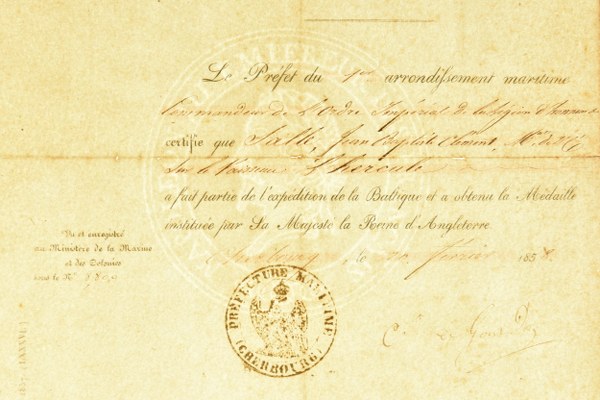 Le Préfet du 1er arrondissement maritime
Commandeur de l'Ordre Impérial de la Légion d'honneur
certifie que Jean Baptiste Clément, Mt de
sur le Vaisseau L'hercule
a fait partie de l'expédition de la Baltique et a obtenu la Médaille
instituée par Sa Majesté la Reine d'Angleterre.
Cherbourg, le février 185
Vu et enregistré
au Ministère de la Marine
et des Colonies
sous le No
PRÉFECTURE MARITIME
(CHERBOURG)